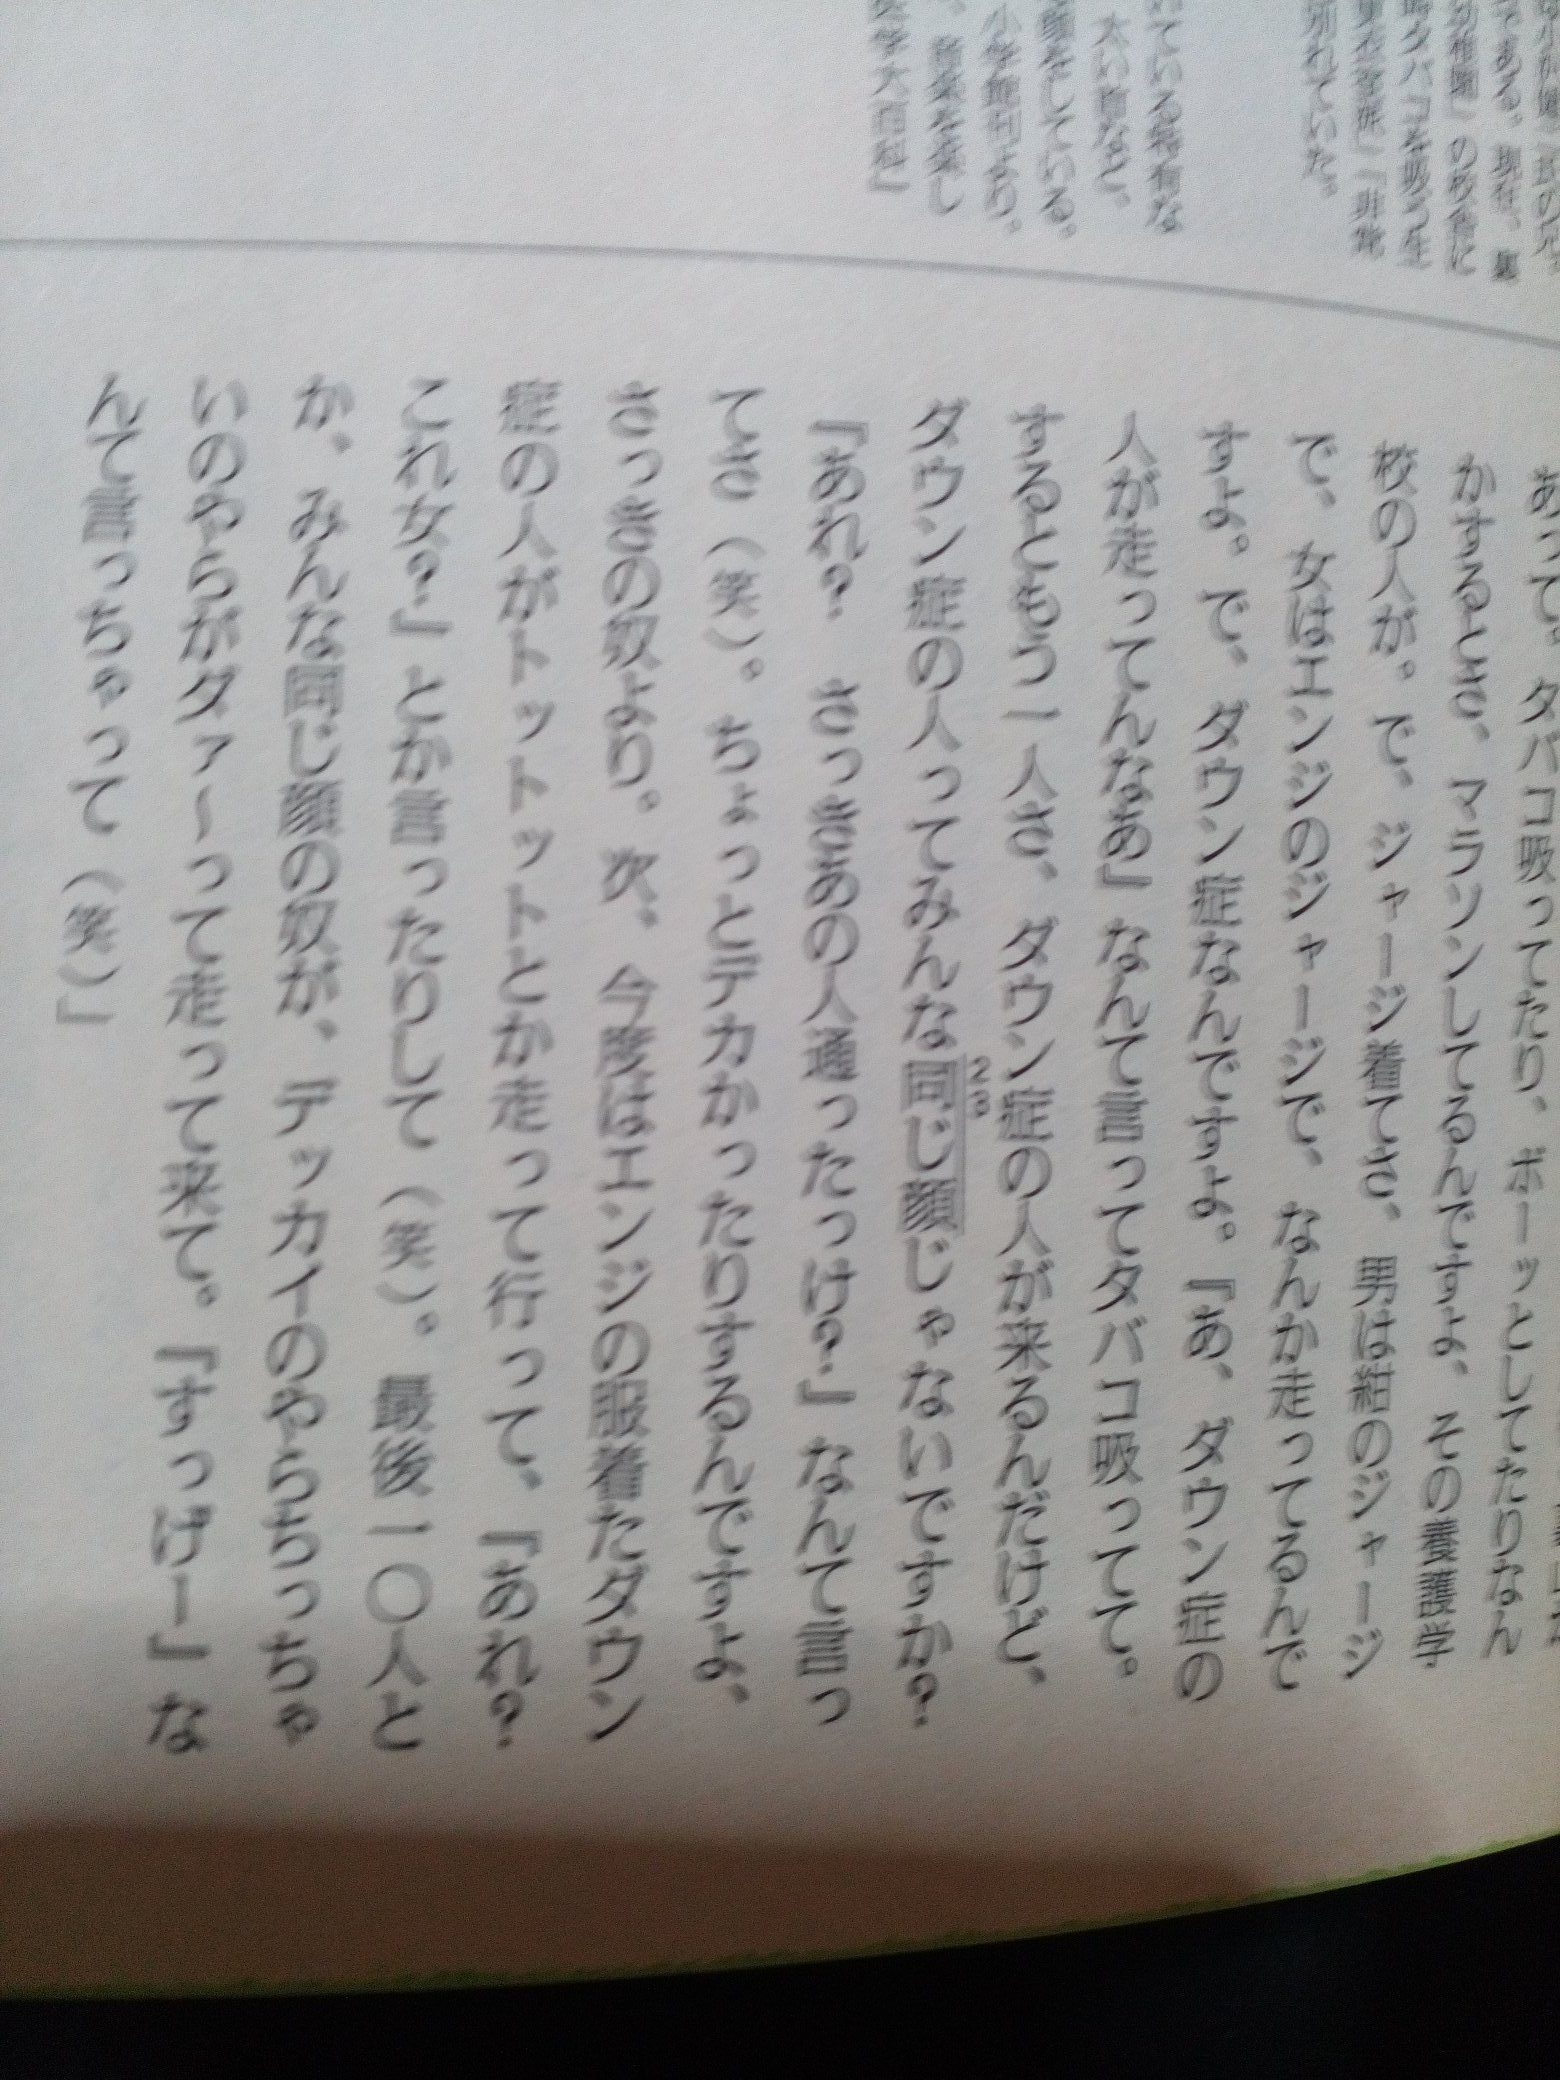 である。現在、裏
別れていた。
ている特有な
顔をしている。
小学館刊より。
あって、タバコ吸ってたり、ボーッとしてたりなん
かするとさ、マラソンしてるんですよ、その養護学
校の人が。で、ジャージ着てさ、男は紺のジャージ
で、女はエンジのジャージで、なんか走ってるんで
すよ。で、ダウン症なんですよ。『あ、ダウン症の
人が走ってんなあ』なんて言ってタバコ吸ってて。
するともう一人さ、ダウン症の人が来るんだけど、
ダウン症の人ってみんな同じ顔じゃないですか？
23
『あれ？　さっきあの人通ったっけ？』なんて言っ
てさ（笑）。ちょっとデカかったりするんですよ、
さっきの奴より。次、今度はエンジの服着たダウン
症の人がトットットットとか走って行って、『あれ？
これ女？』とか言ったりして（笑）。最後一〇人と
か、みんな同じ顔の奴が、デッカイのやらちっちゃ
いのやらがダァ〜って走って来て。『すっげー』な
んて言っちゃって（笑）」